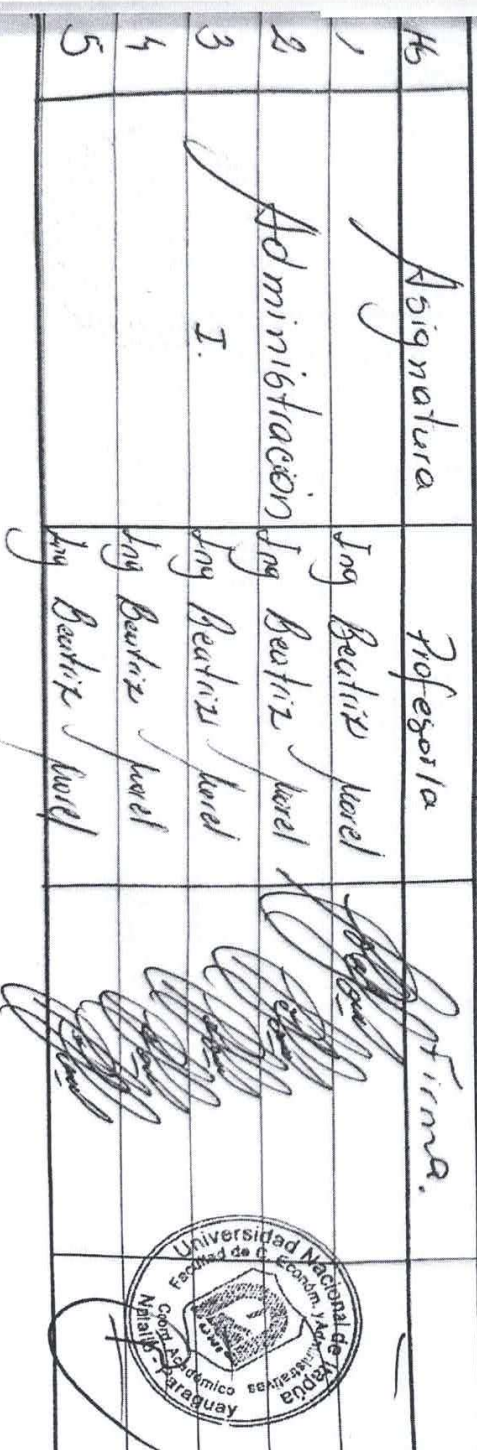 Hs Asignatura Profesor/a Firma.
1 Ing Beatriz Morel
2 Administración Ing Beatriz Morel
3 I. Ing Beatriz Morel
4 Ing Beatriz Morel
5 Ing Beatriz Morel
Universidad Nacional de Itapúa
Facultad de C. Económ. y Administrativas
UNI
Coord. Académico
Natalio - Paraguay